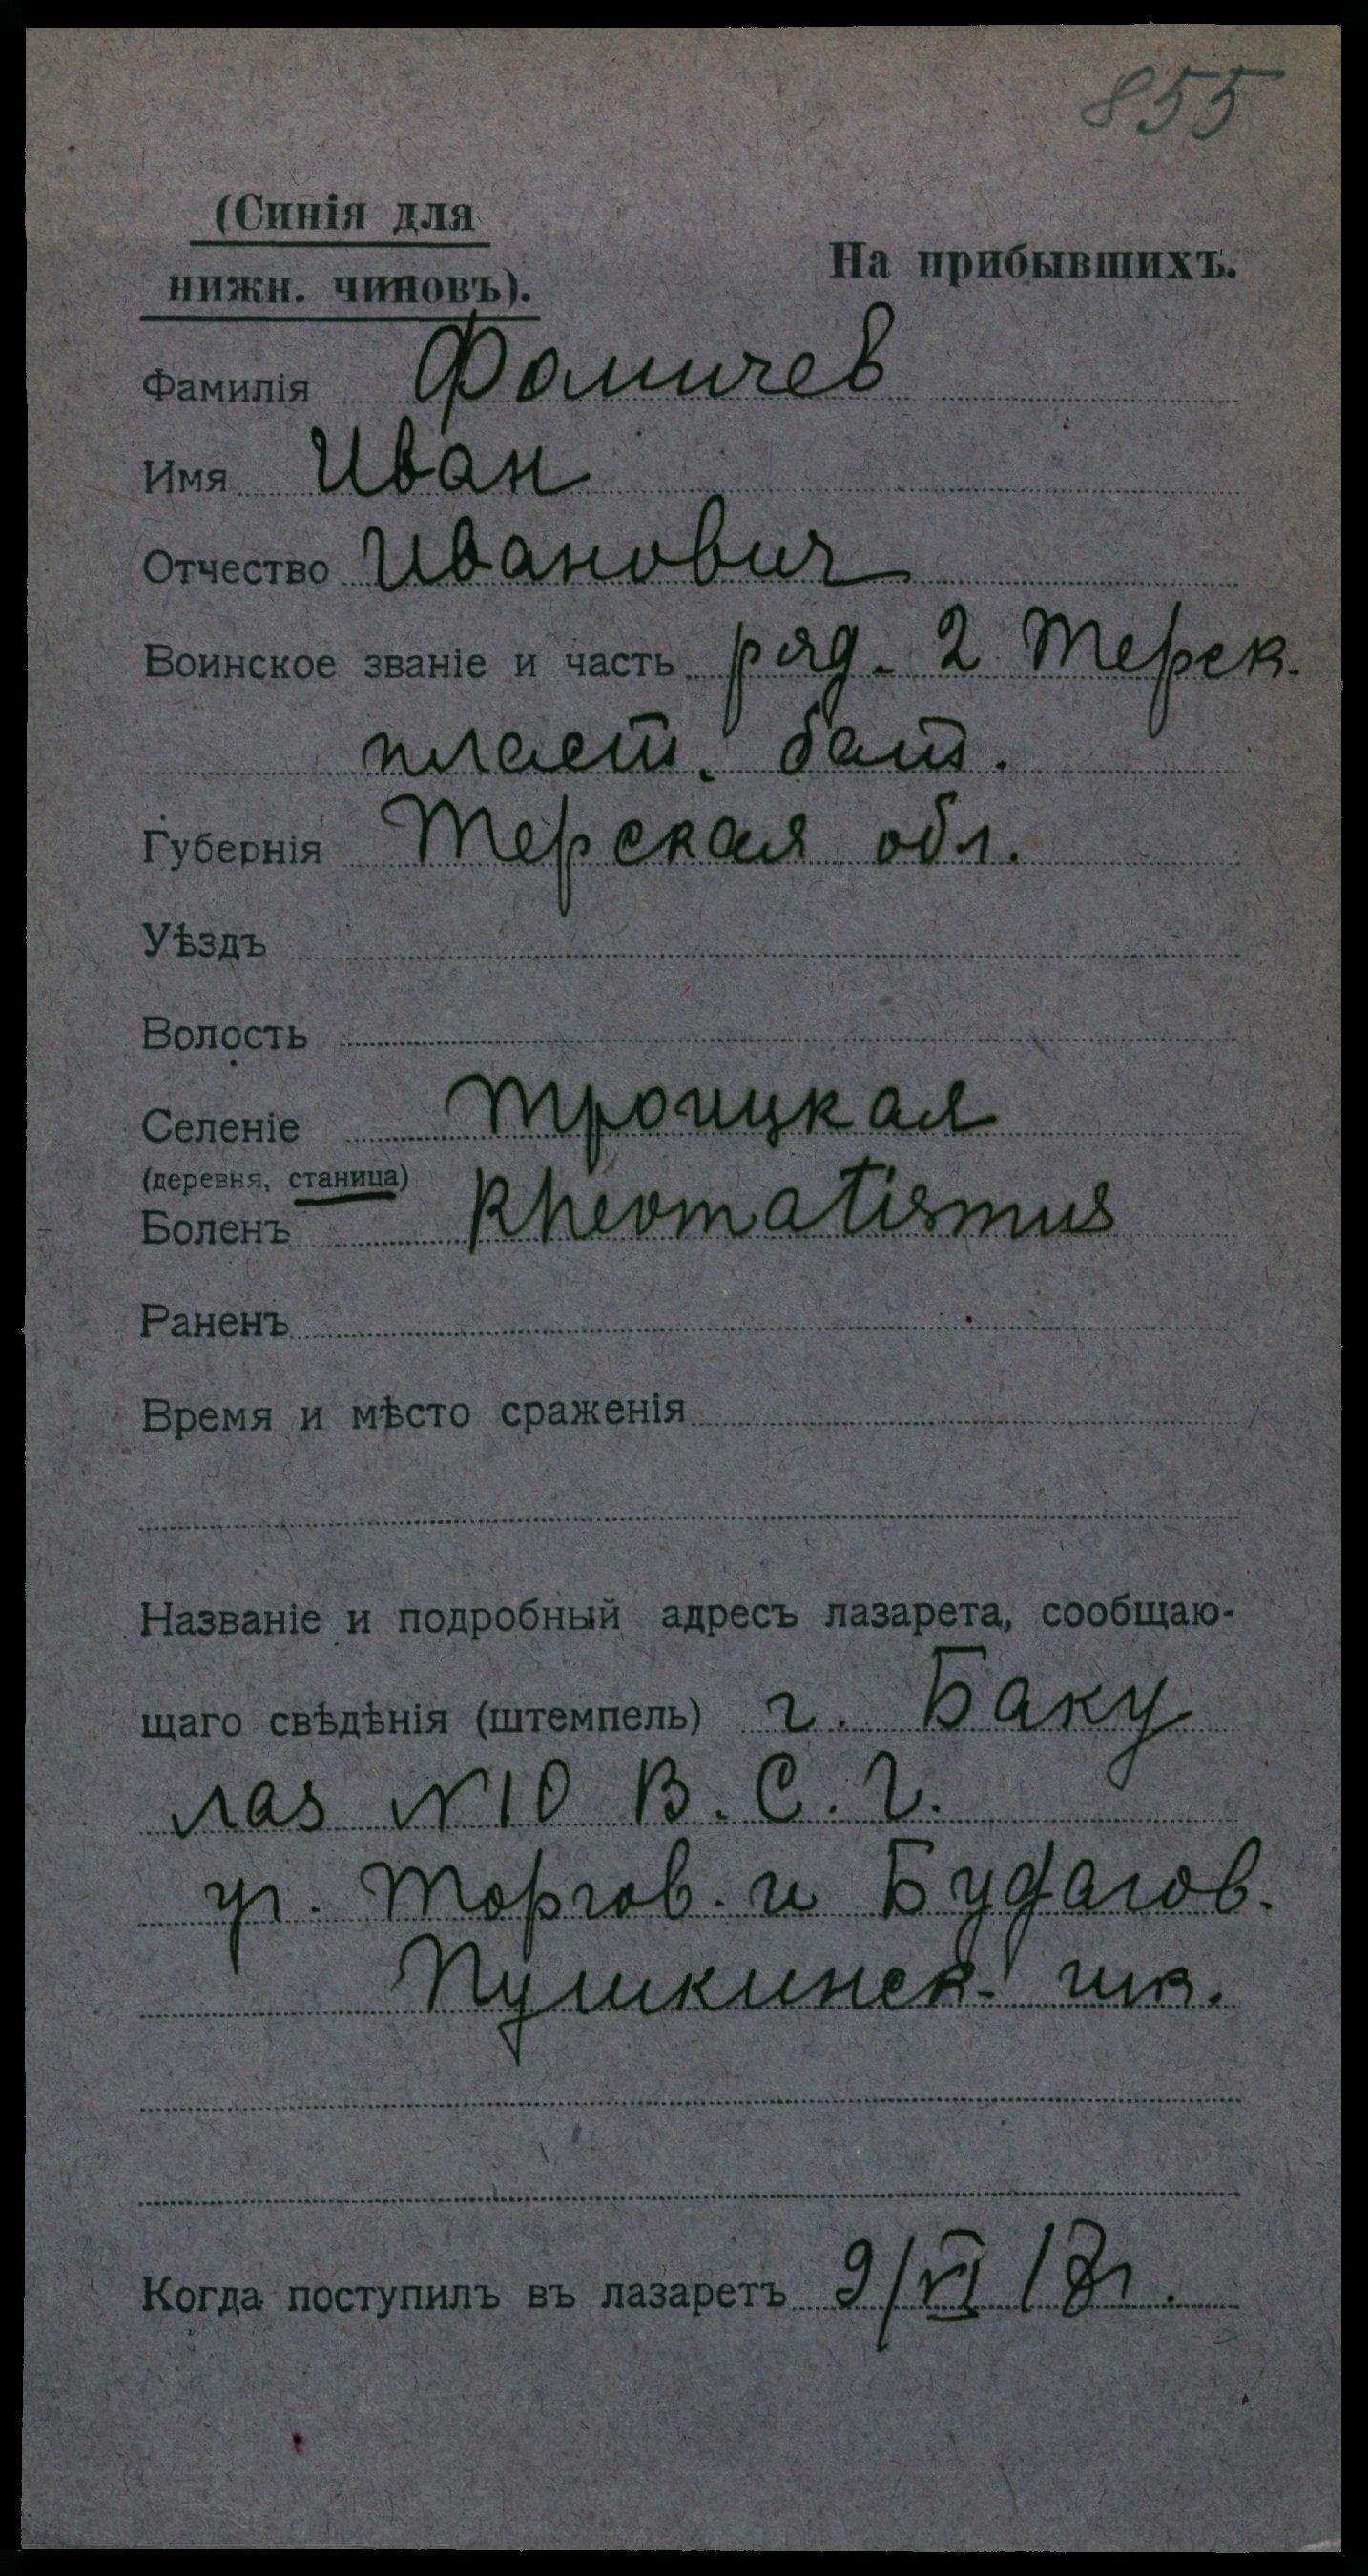 855
(Синія для
нижн. чиновъ).
На прибывшихъ.
Фамилія Фомичев
Имя Иван
Отчество Иванович
Воинское званіе и часть ряд. 2 Терск.
пласт. бат.
Губернія Терская обл.
Уѣздъ
Волость
Селеніе Троицкая
(деревня, станица)
Боленъ Rheomatismus
Раненъ
Время и мѣсто сраженія
Названіе и подробный адресъ лазарета, сообщаю-
щаго свѣдѣнія (штемпель) г. Баку
лаз №10 В. С. Г.
уг. Торгов. и Будагов.
Пушкинск. шк.
Когда поступилъ въ лазаретъ 9/VI